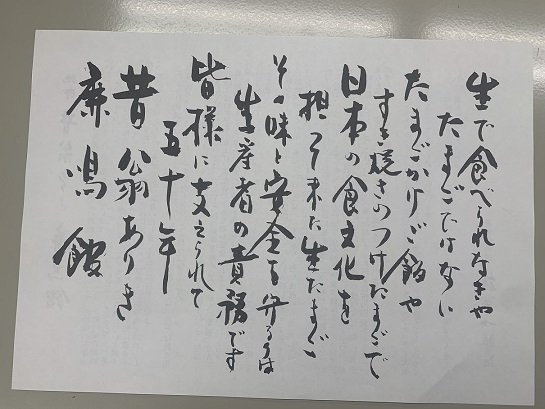 生で食べられなきゃ
たまごではない
たまごかけご飯や
すき焼きのつけたまごで
日本の食文化を
担って来た生たまご
その味と安全を守るのは
生産者の責務です
皆様に支えられて
五十年
昔翁ありき
鹿鳴館